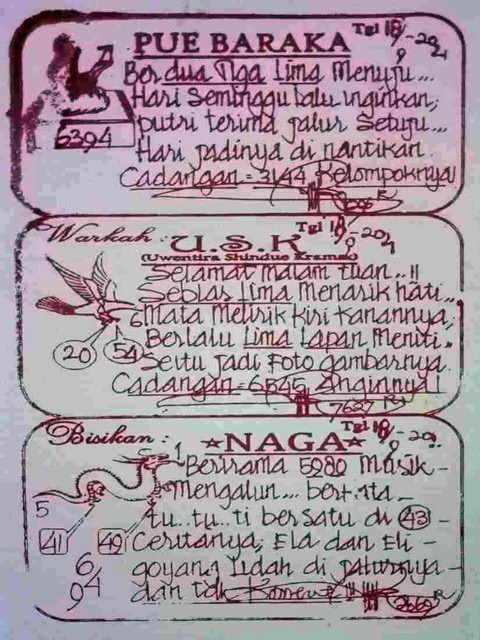 PUE BARAKA
Tgl 18/9-2021
Berdua Tiga Lima Menuju...
Hari Seminggu lalu inginkan,
putri terima jalur Setuju...
Hari jadinya di nantikan.
Cadangan = 3144 Kelompoknya
5394
Warkah :
U.S.K
Tgl 18/9-2021
(Uwentira Shindue Kramat)
Selamat malam tuan..!!
Seblas Lima Menarik hati...
Mata Melirik kiri Kanannya,
Berlalu Lima Lapan Meniti.
Seitu Jadi Foto gambarnya.
Cadangan = 6545, Anginnya!
20
54
6
7627
Bisikan :
NAGA
Tgl 18/9-202
Berirama 5980 Musik -
Mengalun...
tu..tu..ti bersatu di 43 -
Ceritanya, Ela dan Eli -
goyang Lidah di jalurnya -
dan tdk
1
5
41
49
6
94